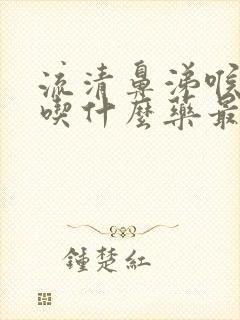 流清鼻涕喉
喫什麼藥最
鍾楚紅